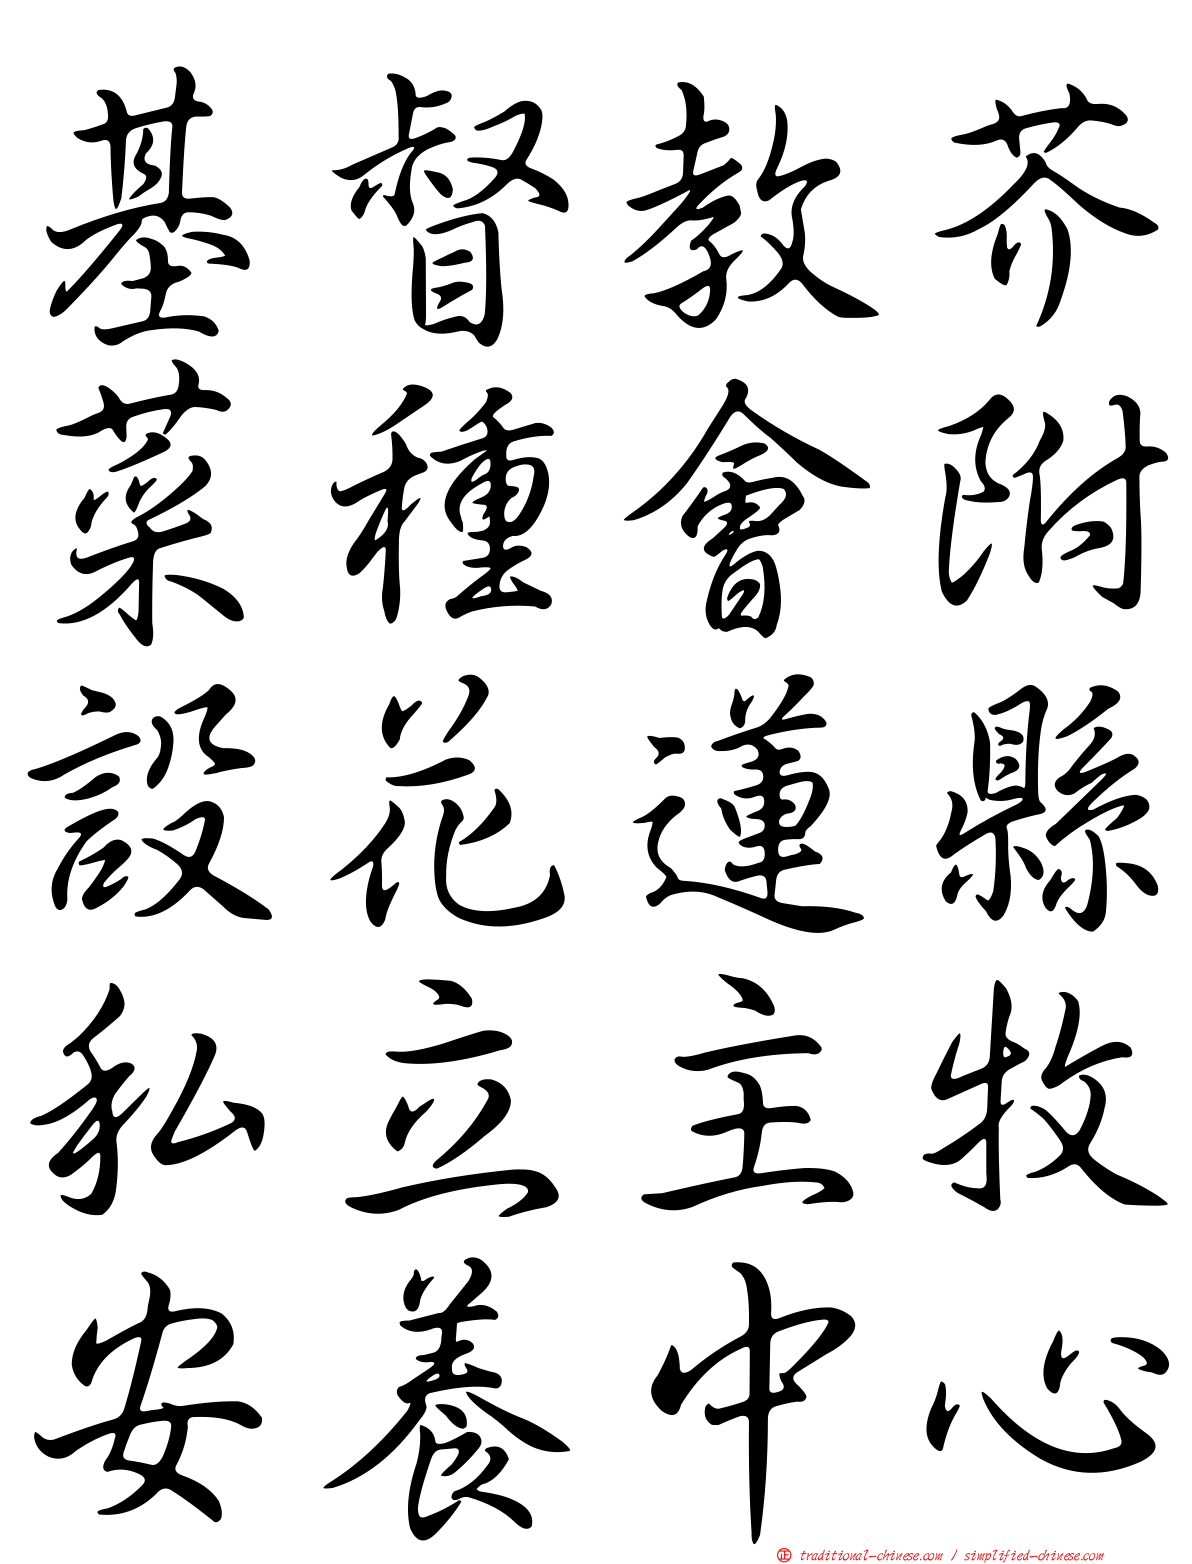 基督教芥
菜種會附
設花蓮縣
私立主牧
安養中心
正 traditional-chinese.com / simplified-chinese.com